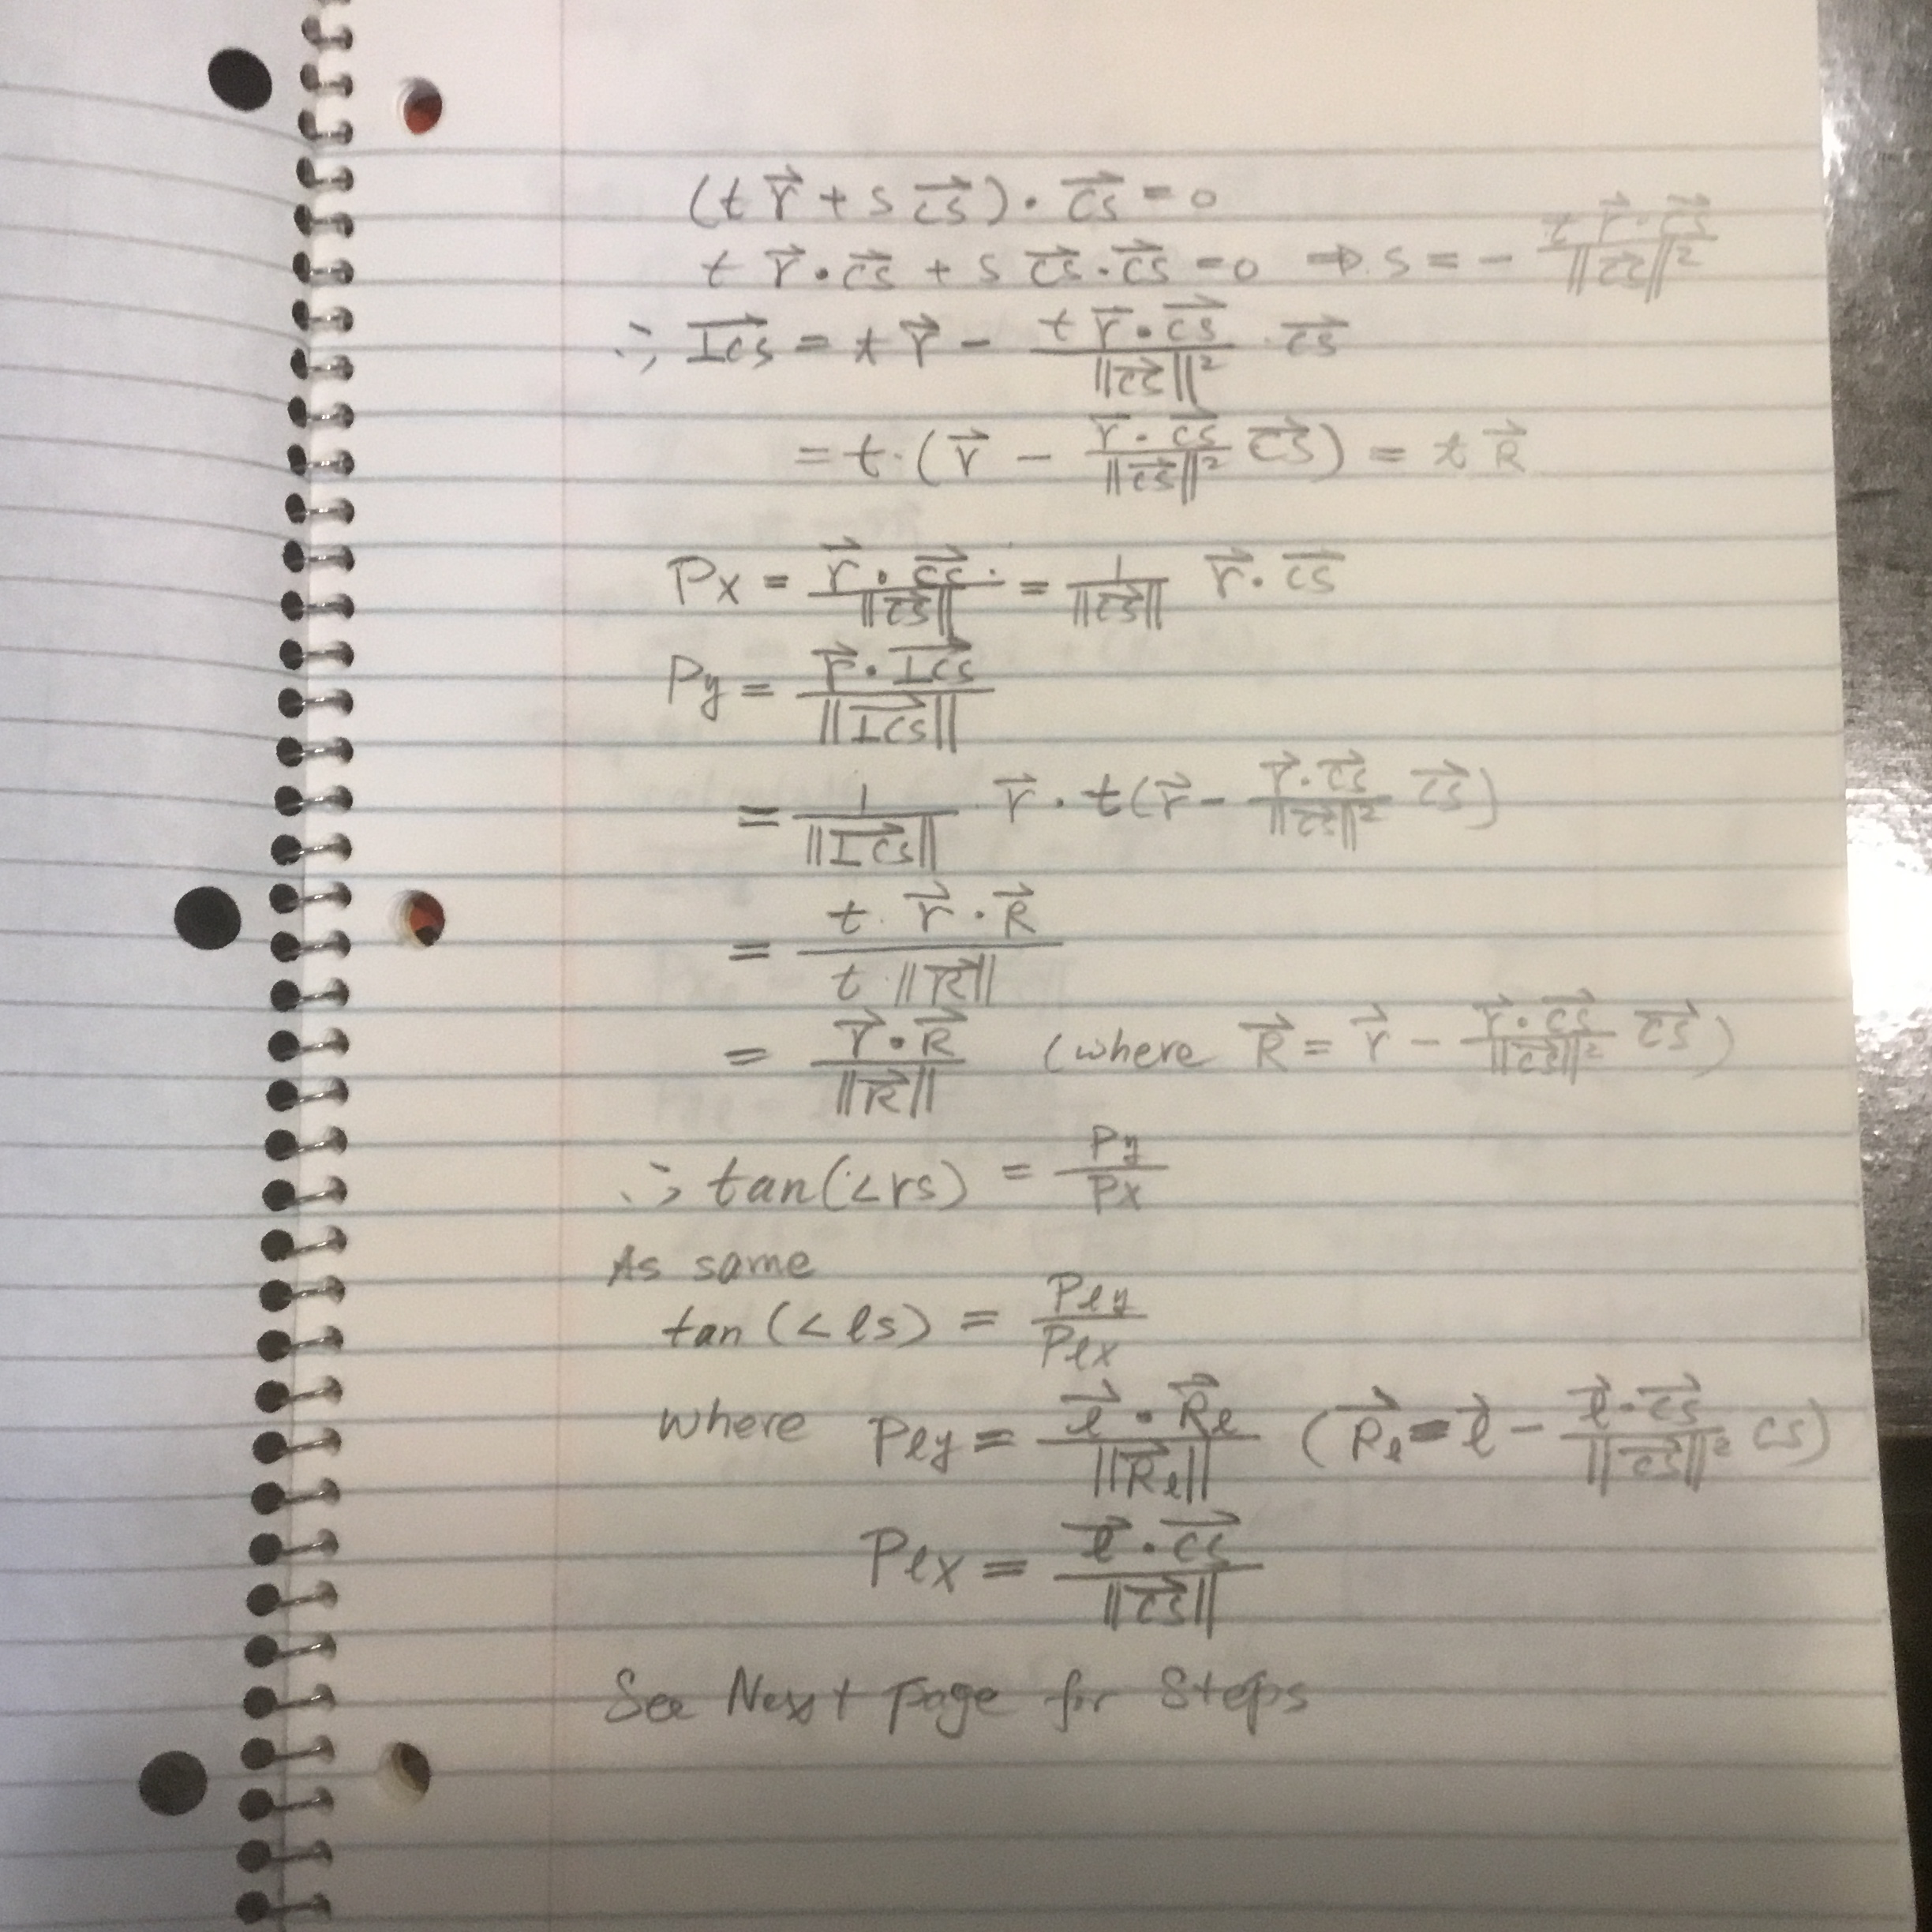 (t r⃗ + s c⃗s⃗) · c⃗s⃗ = 0
t r⃗ · c⃗s⃗ + s c⃗s⃗ · c⃗s⃗ = 0 ⇒ s = - t r⃗ · c⃗s⃗ / ||c⃗s⃗||²
∴ I⃗c⃗s⃗ = t r⃗ - (t r⃗ · c⃗s⃗ / ||c⃗s⃗||²) · c⃗s⃗
= t · (r⃗ - (r⃗ · c⃗s⃗ / ||c⃗s⃗||²) c⃗s⃗) = t R⃗
Px = r⃗ · c⃗s⃗ / ||c⃗s⃗|| = 1 / ||c⃗s⃗|| r⃗ · c⃗s⃗
Py = r⃗ · I⃗c⃗s⃗ / ||I⃗c⃗s⃗||
= 1 / ||I⃗c⃗s⃗|| · r⃗ · t(r⃗ - (r⃗ · c⃗s⃗ / ||c⃗s⃗||²) c⃗s⃗)
= t · r⃗ · R⃗ / t · ||R⃗||
= r⃗ · R⃗ / ||R⃗|| (where R⃗ = r⃗ - (r⃗ · c⃗s⃗ / ||c⃗s⃗||²) c⃗s⃗)
∴ tan(<rs) = Py / Px
As same
tan(<ls) = Ply / Plx
where Ply = l⃗ · R⃗l / ||R⃗l|| (R⃗l = l⃗ - (l⃗ · c⃗s⃗ / ||c⃗s⃗||²) cs)
Plx = l⃗ · c⃗s⃗ / ||c⃗s⃗||
See Next page for Steps